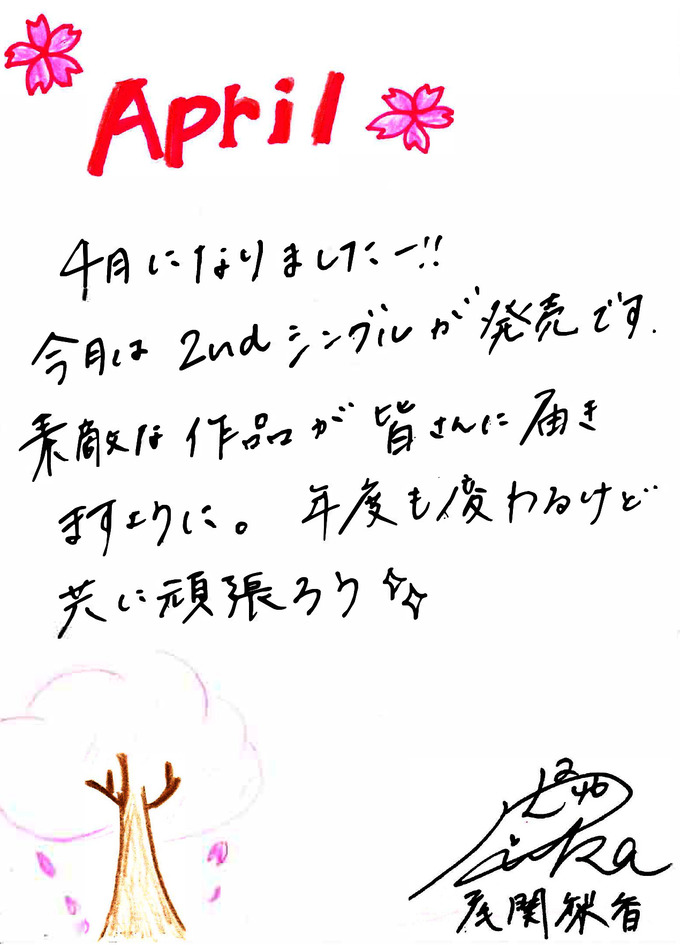 April
4月になりましたー!!
今月は 2ndシングルが発売です.
素敵な作品が皆さんに届き
ますように。 年度も変わるけど
共に頑張ろう
尾関梨香